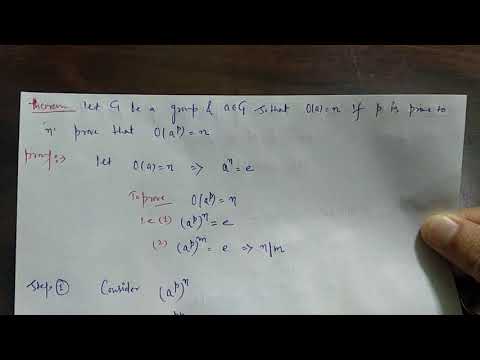 Theorem Let G be a group & a∈G so that O(a)=n If p is prime to
n. prove that O(aᵖ)=n
proof:> Let O(a)=n => aⁿ=e
To prove O(aᵖ)=n
i.e (1) (aᵖ)ⁿ=e
(2) (aᵖ)ᵐ=e => n/m
Step ① Consider (aᵖ)ⁿ